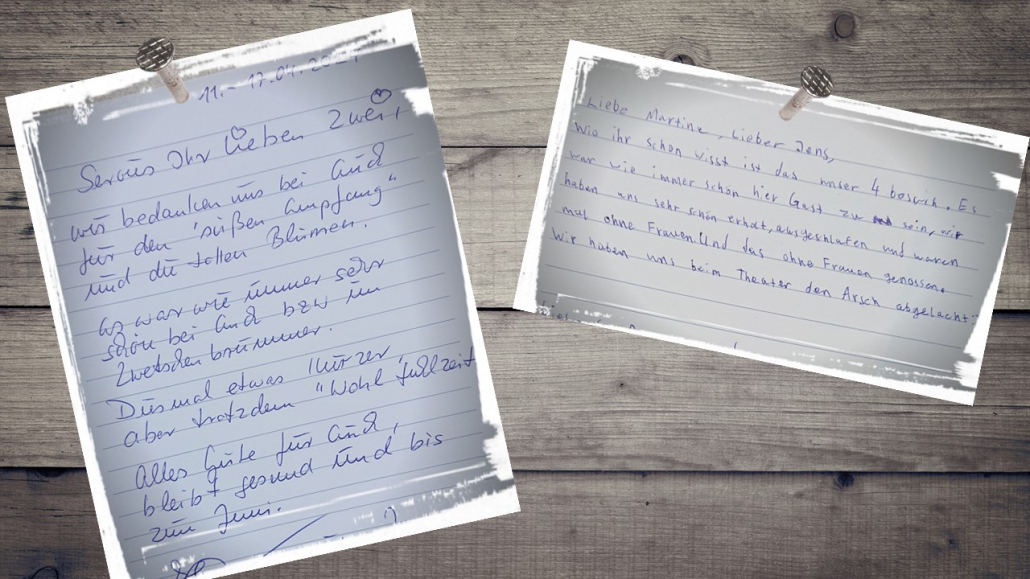 11. - 17.04.2021
Servus Ihr Lieben Zwei,
wir bedanken uns bei Euch
für den "süßen Empfang"
und die tollen Blumen.
Es war wie immer sehr
schön bei Euch bzw im
Zwetschenbrummer.
Diesmal etwas kürzer,
aber trotzdem "Wohlfühlzeit
Alles Gute für Euch,
bleibt gesund und bis
zum Juni.
Liebe Martina, Lieber Jens,
wie ihr schon wisst ist das unser 4 besuch. Es
war wie immer schön hier Gast zu sein, wir
haben uns sehr schön erholt, ausgeschlafen und waren
mal ohne Frauen! Und das ohne Frauen genossen.
Wir haben uns beim Theater den Arsch abgelacht